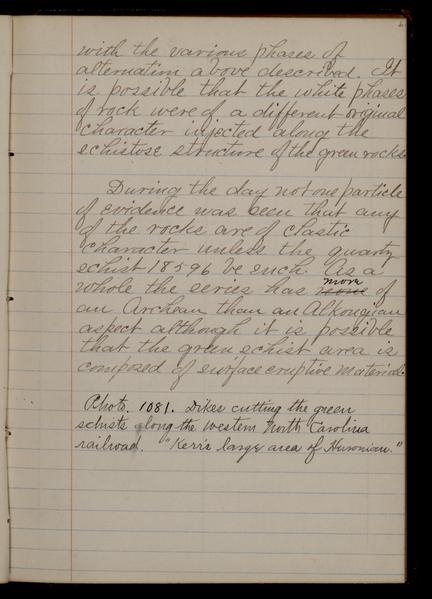 with the various phases of
alternation above described. It
is possible that the white phases
of rock were of a different original
character injected along the
schistose structure of the green rocks
During the day not one particle
of evidence was seen that any
of the rocks are of clastic
character unless the quartz
schist 18596 be such. As a
whole the series has more of
an Archean than an Algonkian
aspect although it is possible
that the green schist area is
composed of surface eruptive material.
Photo. 1081. Dikes cutting the green
schists along the western North Carolina
railroad. "Kerr's large area of Huronian."